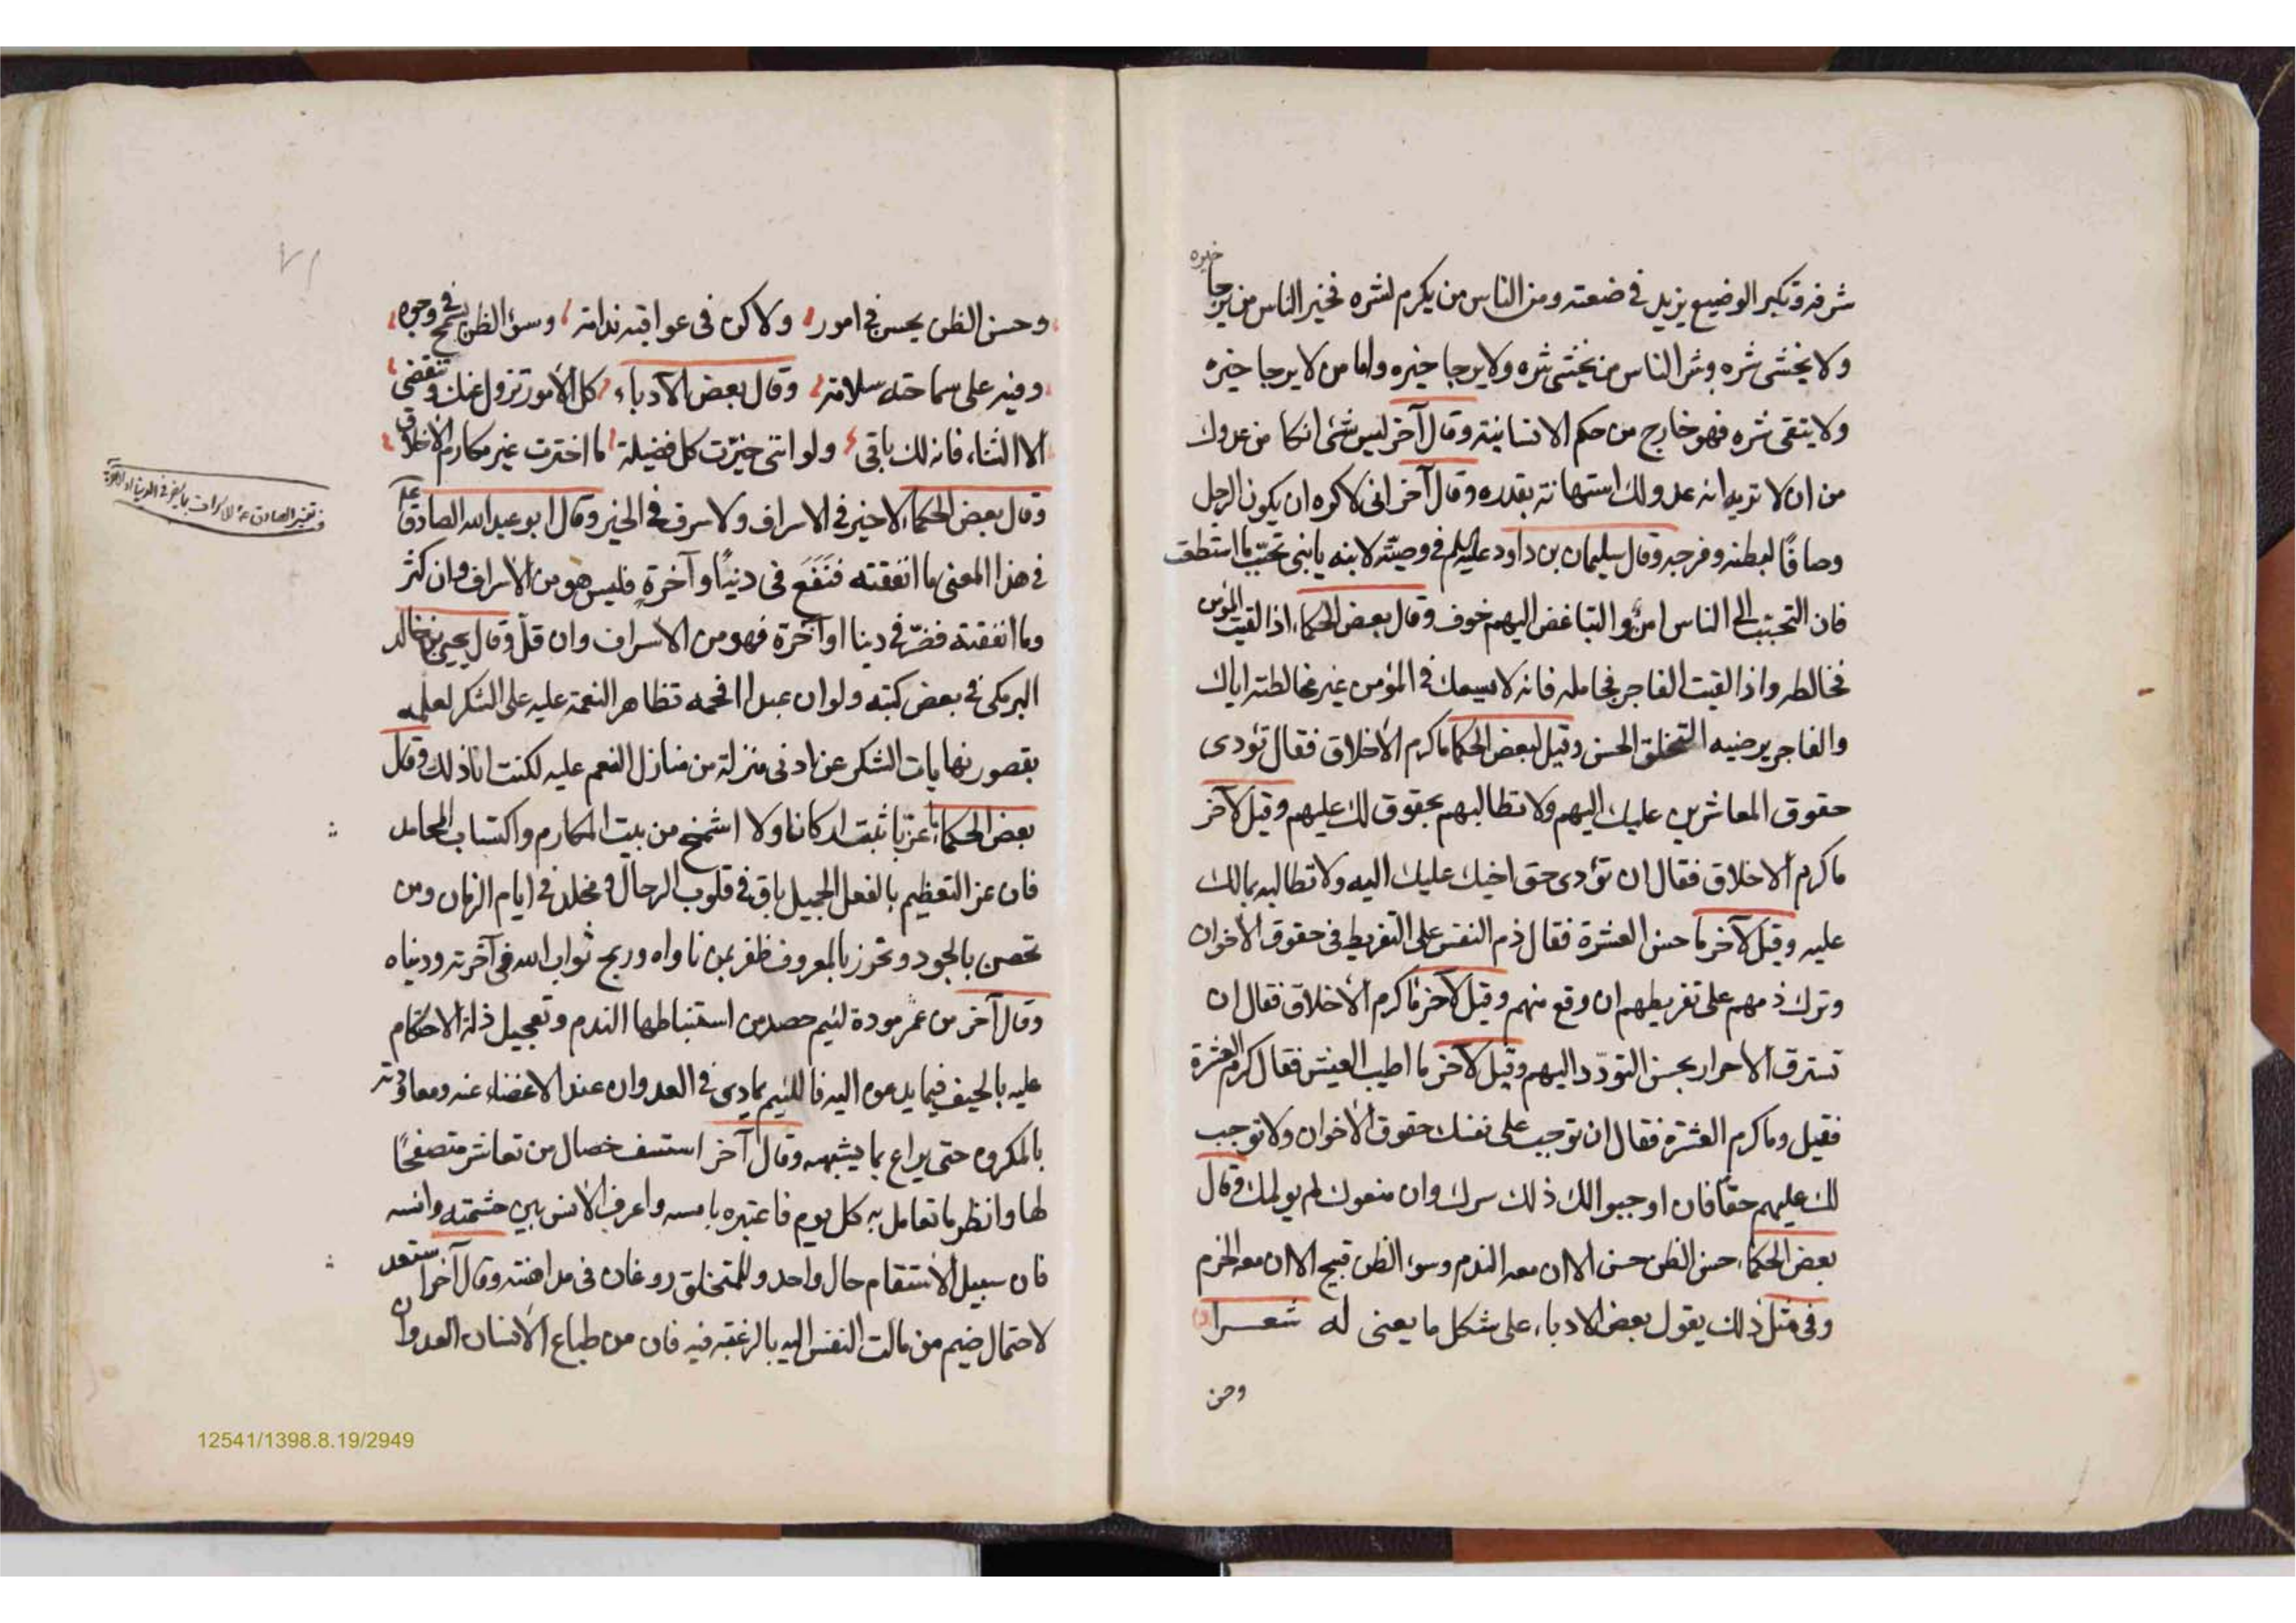 شرفه وتكبر الوضيع يزيد في ضعته ومن الناس من يكرم لشره فخير الناس من يرجا خيره
ولا يخشى شره وشر الناس من يخشى شره ولا يرجا خيره واما من لا يرجا خيره
ولا يتقى شره فهو خارج من حكم الانسانية وقال آخر ليس شئ انكا من عدوك
من ان لا تريه انه عدو لك استهانة بقدره وقال آخر انى لاكره ان يكون الرجل
وصافًا لبطنه وفرجه وقال سليمان بن داود عليه السلم في وصيته لابنه يا بنى تحبّب ما استطعت
فان التحبب الى الناس امنٌ والتباغض اليهم خوف وقال بعض الحكماء اذا لقيت المؤمن
فخالطه واذا لقيت الفاجر فخامله فانه لا يسعك في المؤمن غير مخالطته اياك
والفاجر يرضيه التخلق الحسن وقيل لبعض الحكما ما كرم الأخلاق فقال تؤدى
حقوق المعاشرين عليك اليهم ولا تطالبهم بحقوق لك عليهم وقيل لآخر
ما كرم الاخلاق فقال ان تؤدى حق اخيك عليك اليه ولا تطالبه بمالك
عليه وقيل لآخر ما حسن العشرة فقال ذم النفس على التفريط فى حقوق الأخوان
وترك ذمهم على تفريطهم ان وقع منهم وقيل لآخر ما كرم الأخلاق فقال ان
تسترق الاحرار بحسن التودّد اليهم وقيل لآخر ما اطيب العيش فقال كرم العشرة
فقيل وما كرم العشرة فقال ان توجب على نفسك حقوق الأخوان ولا توجب
لك عليهم حقًا فان اوجبوا لك ذلك سرك وان منعوك لم يولمك وقال
بعض الحكماء حسن الظن حسن الا ان معه الندم وسوء الظن قبيح الا ان معه الحزم
وفى مثل ذلك يقول بعض الادباء على شكل ما يعنى له شعرا
وحسن
وحسن الظن يحسن في امور ولاكن فى عواقبه ندامة وسؤ الظن يسمج في وجوه
وفيه على سماحته سلامة وقال بعض الأدباء كل الأمور تزول عنك وتنقضى
الا الثناء فانه لك باقى ولو انني خيّرت كل فضيلة ما اخترت غير مكارم الاخلاق
وقال بعض الحكماء لا خير في الاسراف ولا سرف في الخير وقال ابو عبد الله الصادق
في هذا المعنى ما انفقته فنَفَعَ فى دنيًا وآخرة فليس هو من الأسراف وان كثر
وما انفقته فضرّ في دنيا او آخرة فهو من الأسراف وان قلّ وقال يحيى بن خالد
البرمكى في بعض كتبه ولو ان عبدا افحمه تظاهر النعمة عليه على الشكر لعلمه
بقصور نهايات الشكر عن ادنى منزلة من منازل النعم عليه لكنت انا ذلك وقال
بعض الحكماء ما عزّ باثبت اركانا ولا اشمخ من بيت المكارم واكتساب المحامد
فان عز التعظيم بالفعل الجميل باق في قلوب الرجال ومخلد في ايام الزمان ومن
تحصن بالجود وتحرز بالمعروف ظفر بمن ناواه وربح ثواب الله في آخرته ودنياه
وقال آخر من عمر مودة لئيم حصد من استنباطها الندم وتعجيل ذلة الاحتكام
عليه بالحيف فيما يدعوه اليه فاللئيم يمادى في العدوان عند الاغضاء عنه
بالمكروه حتى يراع بما يشبهه وقال آخر استسف خصال من تعاشر متصفحًا
لها وانظر ما تعامل به كل يوم فاعتبره بامسه واعرف الأنس بين حشمته وانسه
فان سبيل الأستقام حال واحد وللمتخلق روغان فى مداهنته وقال آخر استعد
لاحتمال ضيم من مالت النفس اليه بالرغبة فيه فان من طباع الأنسان العدوان
12541/1398.8.19/2949